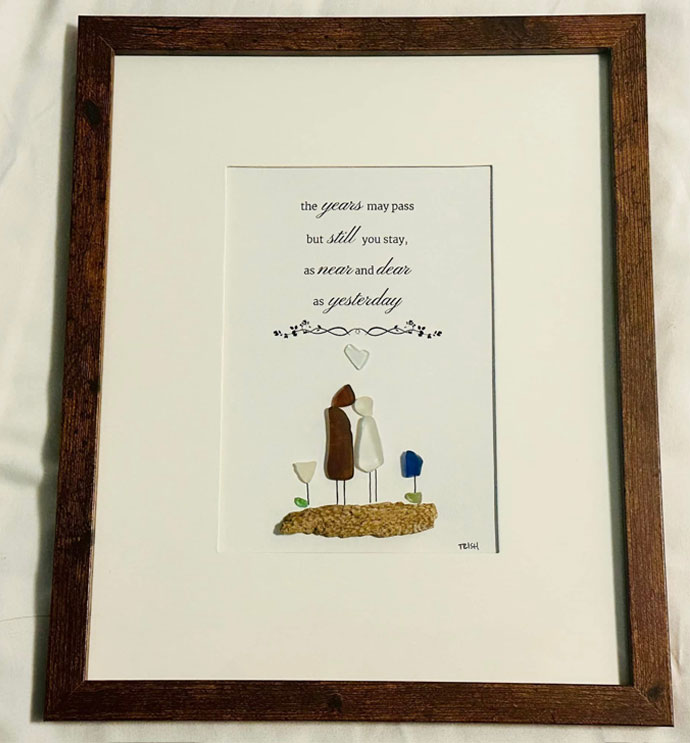 the years may pass
but still you stay,
as near and dear
as yesterday
TRISH